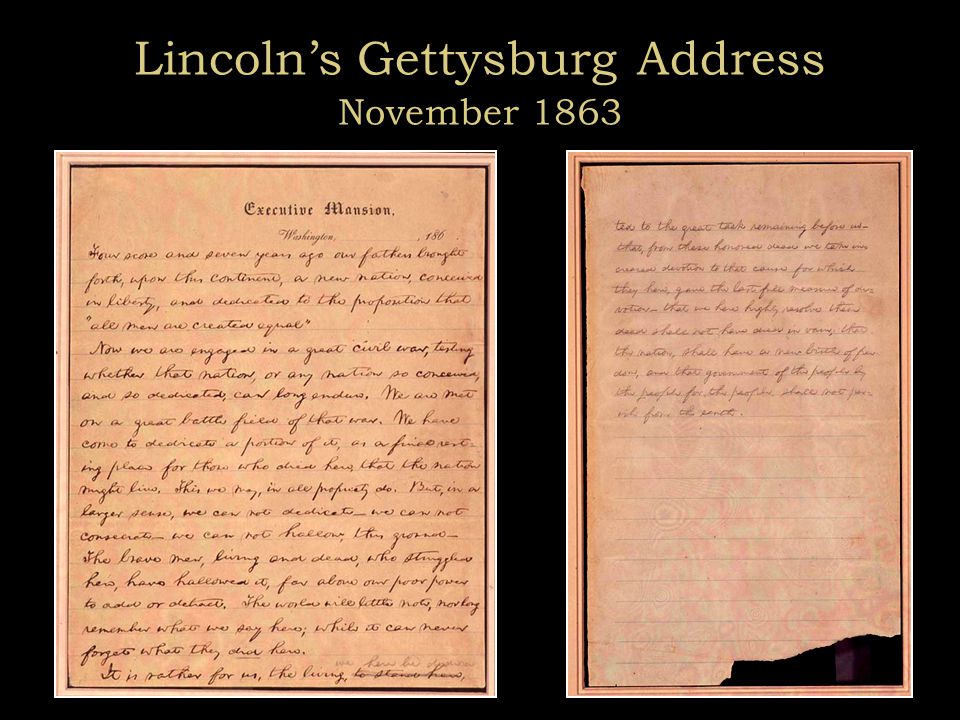 Lincoln’s Gettysburg Address
November 1863
Executive Mansion,
Washington, , 186 .
Four score and seven years ago our fathers brought
forth, upon this continent, a new nation, conceived
in liberty, and dedicated to the proposition that
"all men are created equal"
Now we are engaged in a great civil war, testing
whether that nation, or any nation so conceived,
and so dedicated, can long endure. We are met
on a great battle field of that war. We have
come to dedicate a portion of it, as a final rest-
ing place for those who died here, that the nation
might live. This we may, in all propriety do. But, in a
larger sense, we can not dedicate — we can not
consecrate — we can not hallow, this ground —
The brave men, living and dead, who struggled
here, have hallowed it, far above our poor power
to add or detract. The world will little note, nor long
remember what we say here; while it can never
forget what they did here.
we here be dedica
It is rather for us, the living, to stand here,
ted to the great task remaining before us —
that, from these honored dead we take in-
creased devotion to that cause for which
they here, gave the last full measure of de-
votion — that we here highly resolve these
dead shall not have died in vain; that
the nation, shall have a new birth of free-
dom, and that government of the people by
the people for the people, shall not per-
ish from the earth.